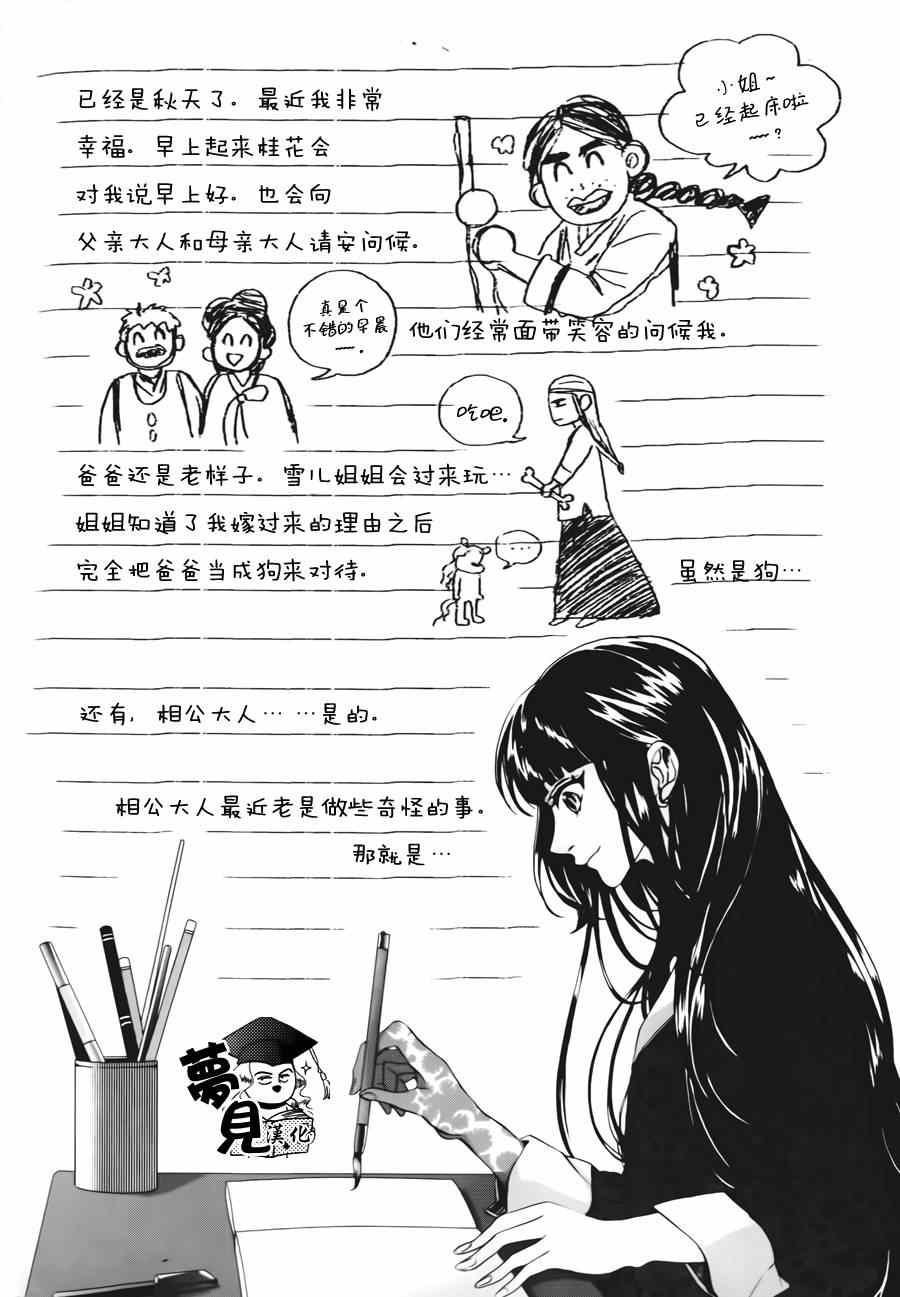 小姐~
已经起床啦
~~?
已经是秋天了。最近我非常
幸福。早上起来桂花会
对我说早上好。也会向
父亲大人和母亲大人请安问候。
真是个
不错的早晨
~~.
他们经常面带笑容的问候我.
吃吧.
爸爸还是老样子。雪儿姐姐会过来玩…
姐姐知道了我嫁过来的理由之后
完全把爸爸当成狗来对待.
....
虽然是狗…
还有, 相公大人… …是的。
相公大人最近老是做些奇怪的事。
那就是…
夢見
漢化